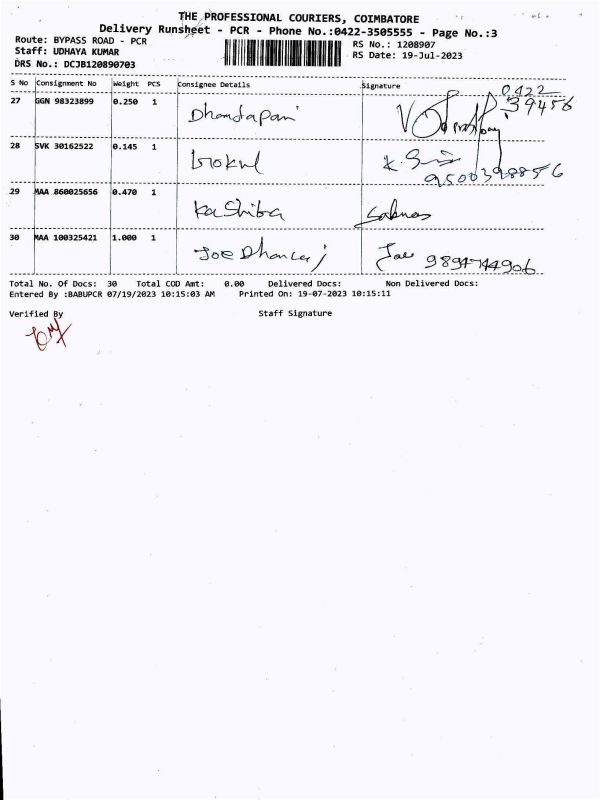 THE PROFESSIONAL COURIERS, COIMBATORE
Delivery Runsheet - PCR - Phone No.:0422-3505555 - Page No.:3
Route: BYPASS ROAD - PCR
RS No.: 1208907
Staff: UDHAYA KUMAR
RS Date: 19-Jul-2023
DRS No.: DCJB120890703
S No Consignment No Weight PCS Consignee Details Signature
0422
27 GGN 98323899 0.250 1 Dhandapani 39456
28 SVK 30162522 0.145 1 Gokul
9500398856
29 MAA 860025656 0.470 1 Kashiba
30 MAA 100325421 1.000 1 Joe Dhanraj Joe 9894744906
Total No. Of Docs: 30 Total COD Amt: 0.00 Delivered Docs: Non Delivered Docs:
Entered By :BABUPCR 07/19/2023 10:15:03 AM Printed On: 19-07-2023 10:15:11
Verified By Staff Signature